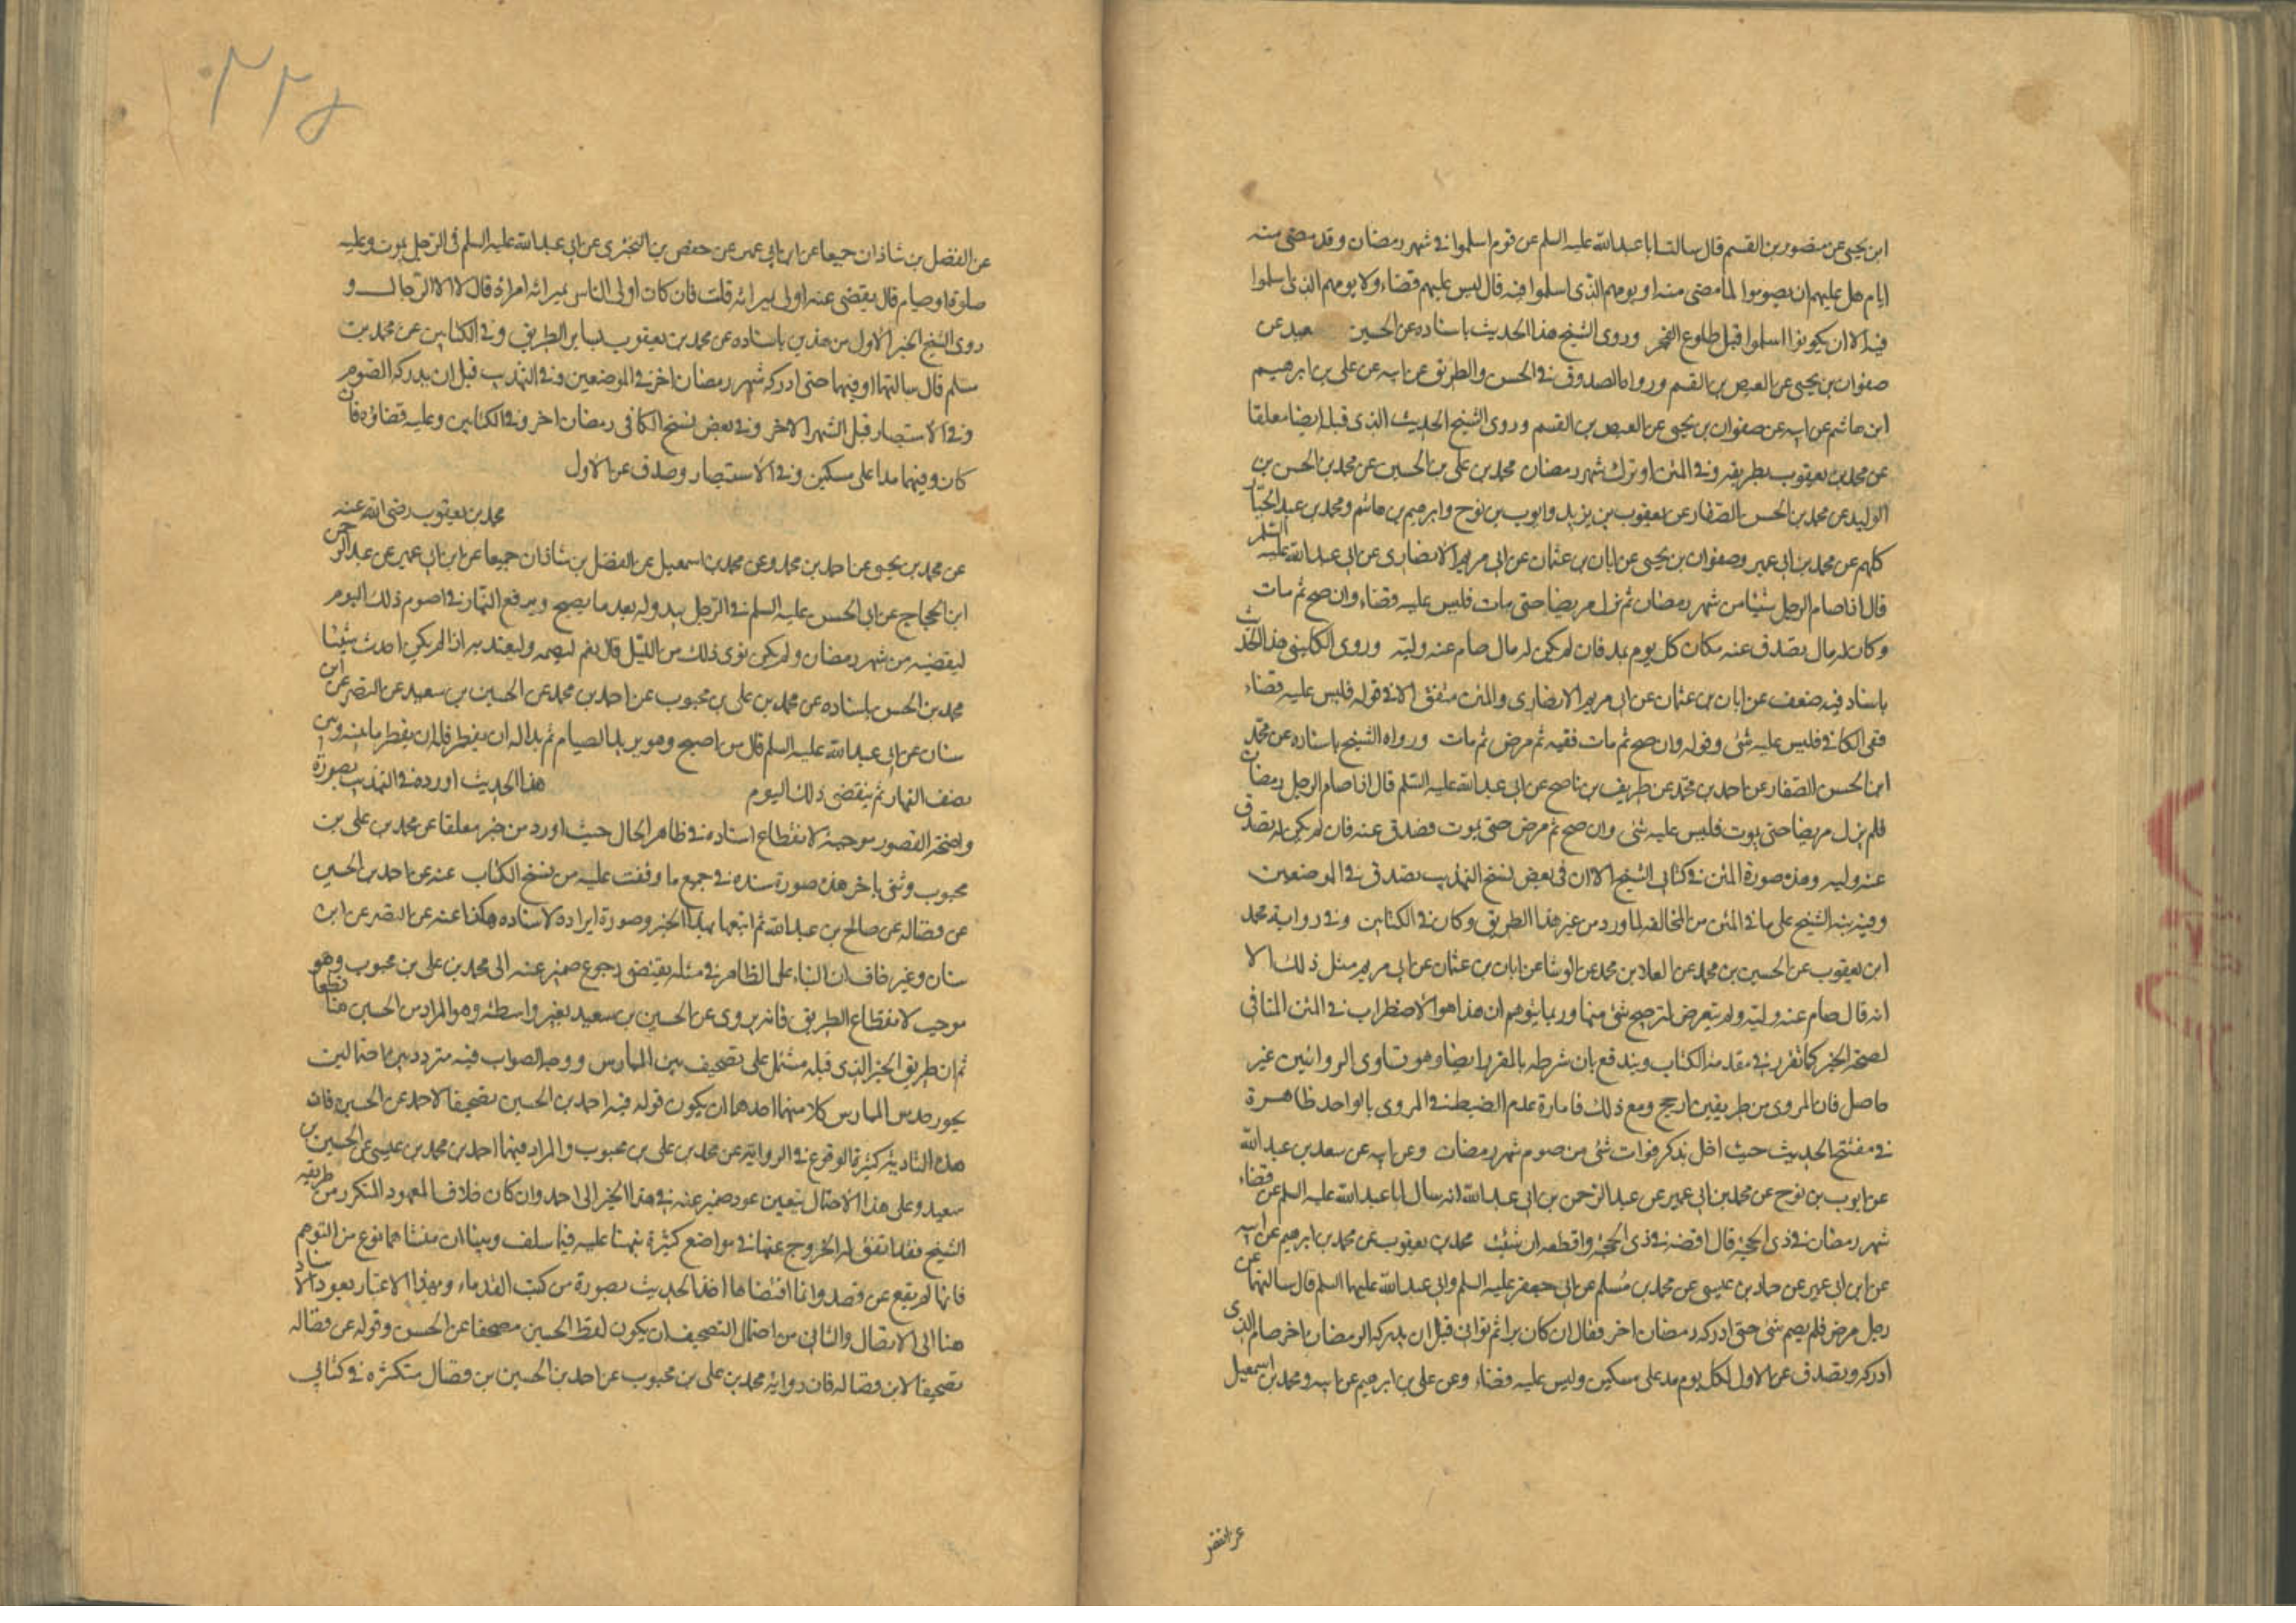 ابن يحيى عن منصور بن القسم قال سالت ابا عبدالله عليه السلم عن قوم اسلموا في شهر رمضان وقد مضى منه
ايام هل عليهم ان يصوموا لما مضى منه او يومهم الذى اسلموا فيه قال ليس عليهم قضاء ولا يومهم الذى اسلموا
فيه الا ان يكونوا اسلموا قبل طلوع الفجر وروى الشيخ هذا الحديث باسناده عن الحسين سعيد عن
صفوان بن يحيى عن العيص بن القسم ورواه الصدوق في الحسن والطريق عن ابيه عن على بن ابرهيم
ابن هاشم عن ابيه عن صفوان بن يحيى عن العيص بن القسم وروى الشيخ الحديث الذى قبله ايضا معلقا
عن محمد بن يعقوب بطريقه وفي المتن او ترك شهر رمضان محمد بن على بن الحسين عن محمد بن الحسن بن
الوليد عن محمد بن الحسن الصفار عن يعقوب بن يزيد وايوب بن نوح وابرهيم بن هاشم ومحمد بن عبد الجبار
كلهم عن محمد بن ابى عمير وصفوان بن يحيى عن ابان بن عثمان عن ابى مريم الانصارى عن ابى عبدالله عليه السلم
قال اذا صام الرجل شيئا من شهر رمضان ثم لم يزل مريضا حتى مات فليس عليه قضاء وان صح ثم مات
وكان له مال تصدق عنه مكان كل يوم بمد فان لم يكن له مال صام عنه وليه وروى الكلينى هذا الحديث
باسناد فيه ضعف عن ابان بن عثمان عن ابى مريم الانصارى والمتن متفق الا في قوله فليس عليه قضاء
ففى الكافي فليس عليه شئ وقوله وان صح ثم مات ففيه ثم مرض ثم مات ورواه الشيخ باسناده عن محمد
ابن الحسن الصفار عن احمد بن محمد عن ظريف بن ناصح عن ابى عبدالله عليه السلم قال اذا صام الرجل رمضان
فلم يزل مريضا حتى يموت فليس عليه شئ وان صح ثم مرض حتى يموت فصدق عنه فان لم يكن له تصدق
عنه وليه وهذه صورة المتن في كتابى الشيخ الا ان فى بعض نسخ التهذيب تصدق في الموضعين
وفيه نبه الشيخ على ما في المتن من المخالفة لما ورد من غير هذا الطريق وكان في الكتابين وفي رواية محمد
ابن يعقوب عن الحسين بن محمد عن المعلا بن محمد عن الوشا عن ابان بن عثمان عن ابى مريم مثل ذلك الا
انه قال صام عنه وليه ولم يتعرض لترجيح شئ منهما وربما يتوهم ان هذا هو الاضطراب في المتن المنافى
لصحة الخبر كما تقرر في مقدمة الكتاب ويندفع بان شرطه بالمقرر ايضا وهو تساوى الروايتين غير
حاصل فان المروى من طريقين ارجح ومع ذلك فامارة عدم الضبط في المروى بالواحد ظاهرة
في مفتتح الحديث حيث اخل بذكر فوات شئ من صوم شهر رمضان وعن ابيه عن سعد بن عبدالله
عن ايوب بن نوح عن محمد بن ابى عمير عن عبد الرحمن بن ابى عبدالله انه سال ابا عبدالله عليه السلم عن قضاء
شهر رمضان في ذى الحجة قال اقضه في ذى الحجة واقطعه ان شئت محمد بن يعقوب عن محمد بن ابرهيم عن ابيه
عن ابن ابى عمير عن حماد بن عيسى عن محمد بن مسلم عن ابى جعفر عليه السلم وابى عبدالله عليهما السلم قال سالتهما عن
رجل مرض فلم يصم شئ حتى ادركه رمضان اخر فقال ان كان برا ثم توانى قبل ان يدركه الرمضان اخر صام الذى
ادركه وتصدق عن الاول لكل يوم مد على مسكين وليس عليه قضاء وعن على بن ابرهيم عن ابيه ومحمد بن اسمعيل
عن الفضل
٢٢٥
عن الفضل بن شاذان جميعا عن ابن ابى عمير عن حفص بن البخترى عن ابى عبدالله عليه السلم فى الرجل يموت وعليه
صلوة او صيام قال يقضى عنه اولى بميراثه قلت فان كان اولى الناس بميراثه امراة قال لا الا الرجال و
روى الشيخ الخبر الاول من هذين باسناده عن محمد بن يعقوب بساير الطريق وفي الكتابين عن محمد بن
مسلم قال سالتهما وفيهما حتى ادركه شهر رمضان اخر في الموضعين وفي التهذيب قبل ان يدركه الصوم
وفي الاستبصار قبل الشهر الاخر وفي بعض نسخ الكافى رمضان اخر وفي الكتابين وعليه قضاؤه فان
كان وفيهما مدا على مسكين وفي الاستبصار وصدق عن الاول
محمد بن يعقوب رضى الله عنه
عن محمد بن يحيى عن احمد بن محمد وعن محمد بن اسمعيل عن الفضل بن شاذان جميعا عن ابن ابى عمير عن عبد الرحمن
ابن الحجاج عن ابى الحسن عليه السلم في الرجل يبدو له بعد ما يصبح ويرتفع النهار في صوم ذلك اليوم
ليقضيه من شهر رمضان ولم يكن نوى ذلك من الليل قال نعم ليصمه وليعتد به اذا لم يكن احدث شيئا
محمد بن الحسن باسناده عن محمد بن على بن محبوب عن احمد بن محمد عن الحسين بن سعيد عن النضر عن ابن
سنان عن ابى عبدالله عليه السلم قال من اصبح وهو يريد الصيام ثم بدا له ان يفطر فله ان يفطر ما بينه وبين
نصف النهار ثم يقضى ذلك اليوم هذا الحديث اورده في التهذيب بصورة
واضحة القصور موجبة لانقطاع اسناده في ظاهر الحال حيث اورد من خبر معلقا عن محمد بن على بن
محبوب وثنى باخر هذه صورة سنده في جميع ما وقفت عليه من نسخ الكتاب عنه عن احمد بن الحسين
عن فضاله عن صالح بن عبدالله ثم اتبعهما بهذا الخبر وصورة ايراده لاسناده هكذا عنه عن النضر عن ابن
سنان وغير خاف ان البناء على الظاهر في مثله يقتضى رجوع ضمير عنه الى محمد بن على بن محبوب وهو
موجب لانقطاع الطريق فانه يروى عن الحسين بن سعيد بغير واسطة وهو المراد من الحسين هنا قطعا
ثم ان طريق الخبر الذى قبله مشتمل على تصحيف بين للممارس ووجه الصواب فيه متردد بين احتمالين
يجوز حدس الممارس كلا منهما احدهما ان يكون قوله فيه احمد بن الحسين تصحيفا لاحمد عن الحسين فان
هذه التادية كثيرة الوقوع في الرواية عن محمد بن على بن محبوب والمراد فيهما احمد بن محمد بن عيسى عن الحسين بن
سعيد وعلى هذا الاحتمال يتعين عود ضمير عنه في هذا الخبر الى احمد وان كان خلاف المعهود المتكرر من طريقه
الشيخ فقد اتفق له الخروج عنها في مواضع كثيرة نبهنا عليه فيما سلف وبينا ان منشاها نوع من التوهم
فانها لم يقع عن قصد وانما اقتضاها اخذ الحديث بصورة من كتب القدماء وبهذا الاعتبار يعود الاسناد
هنا الى الاتصال والثانى من احتمال التصحيف ان يكون لفظ الحسين مصحفا عن الحسن وقوله عن فضاله
تصحيفا لابن فضاله فان رواية محمد بن على بن محبوب عن احمد بن الحسين بن فضال متكثره في كتابى